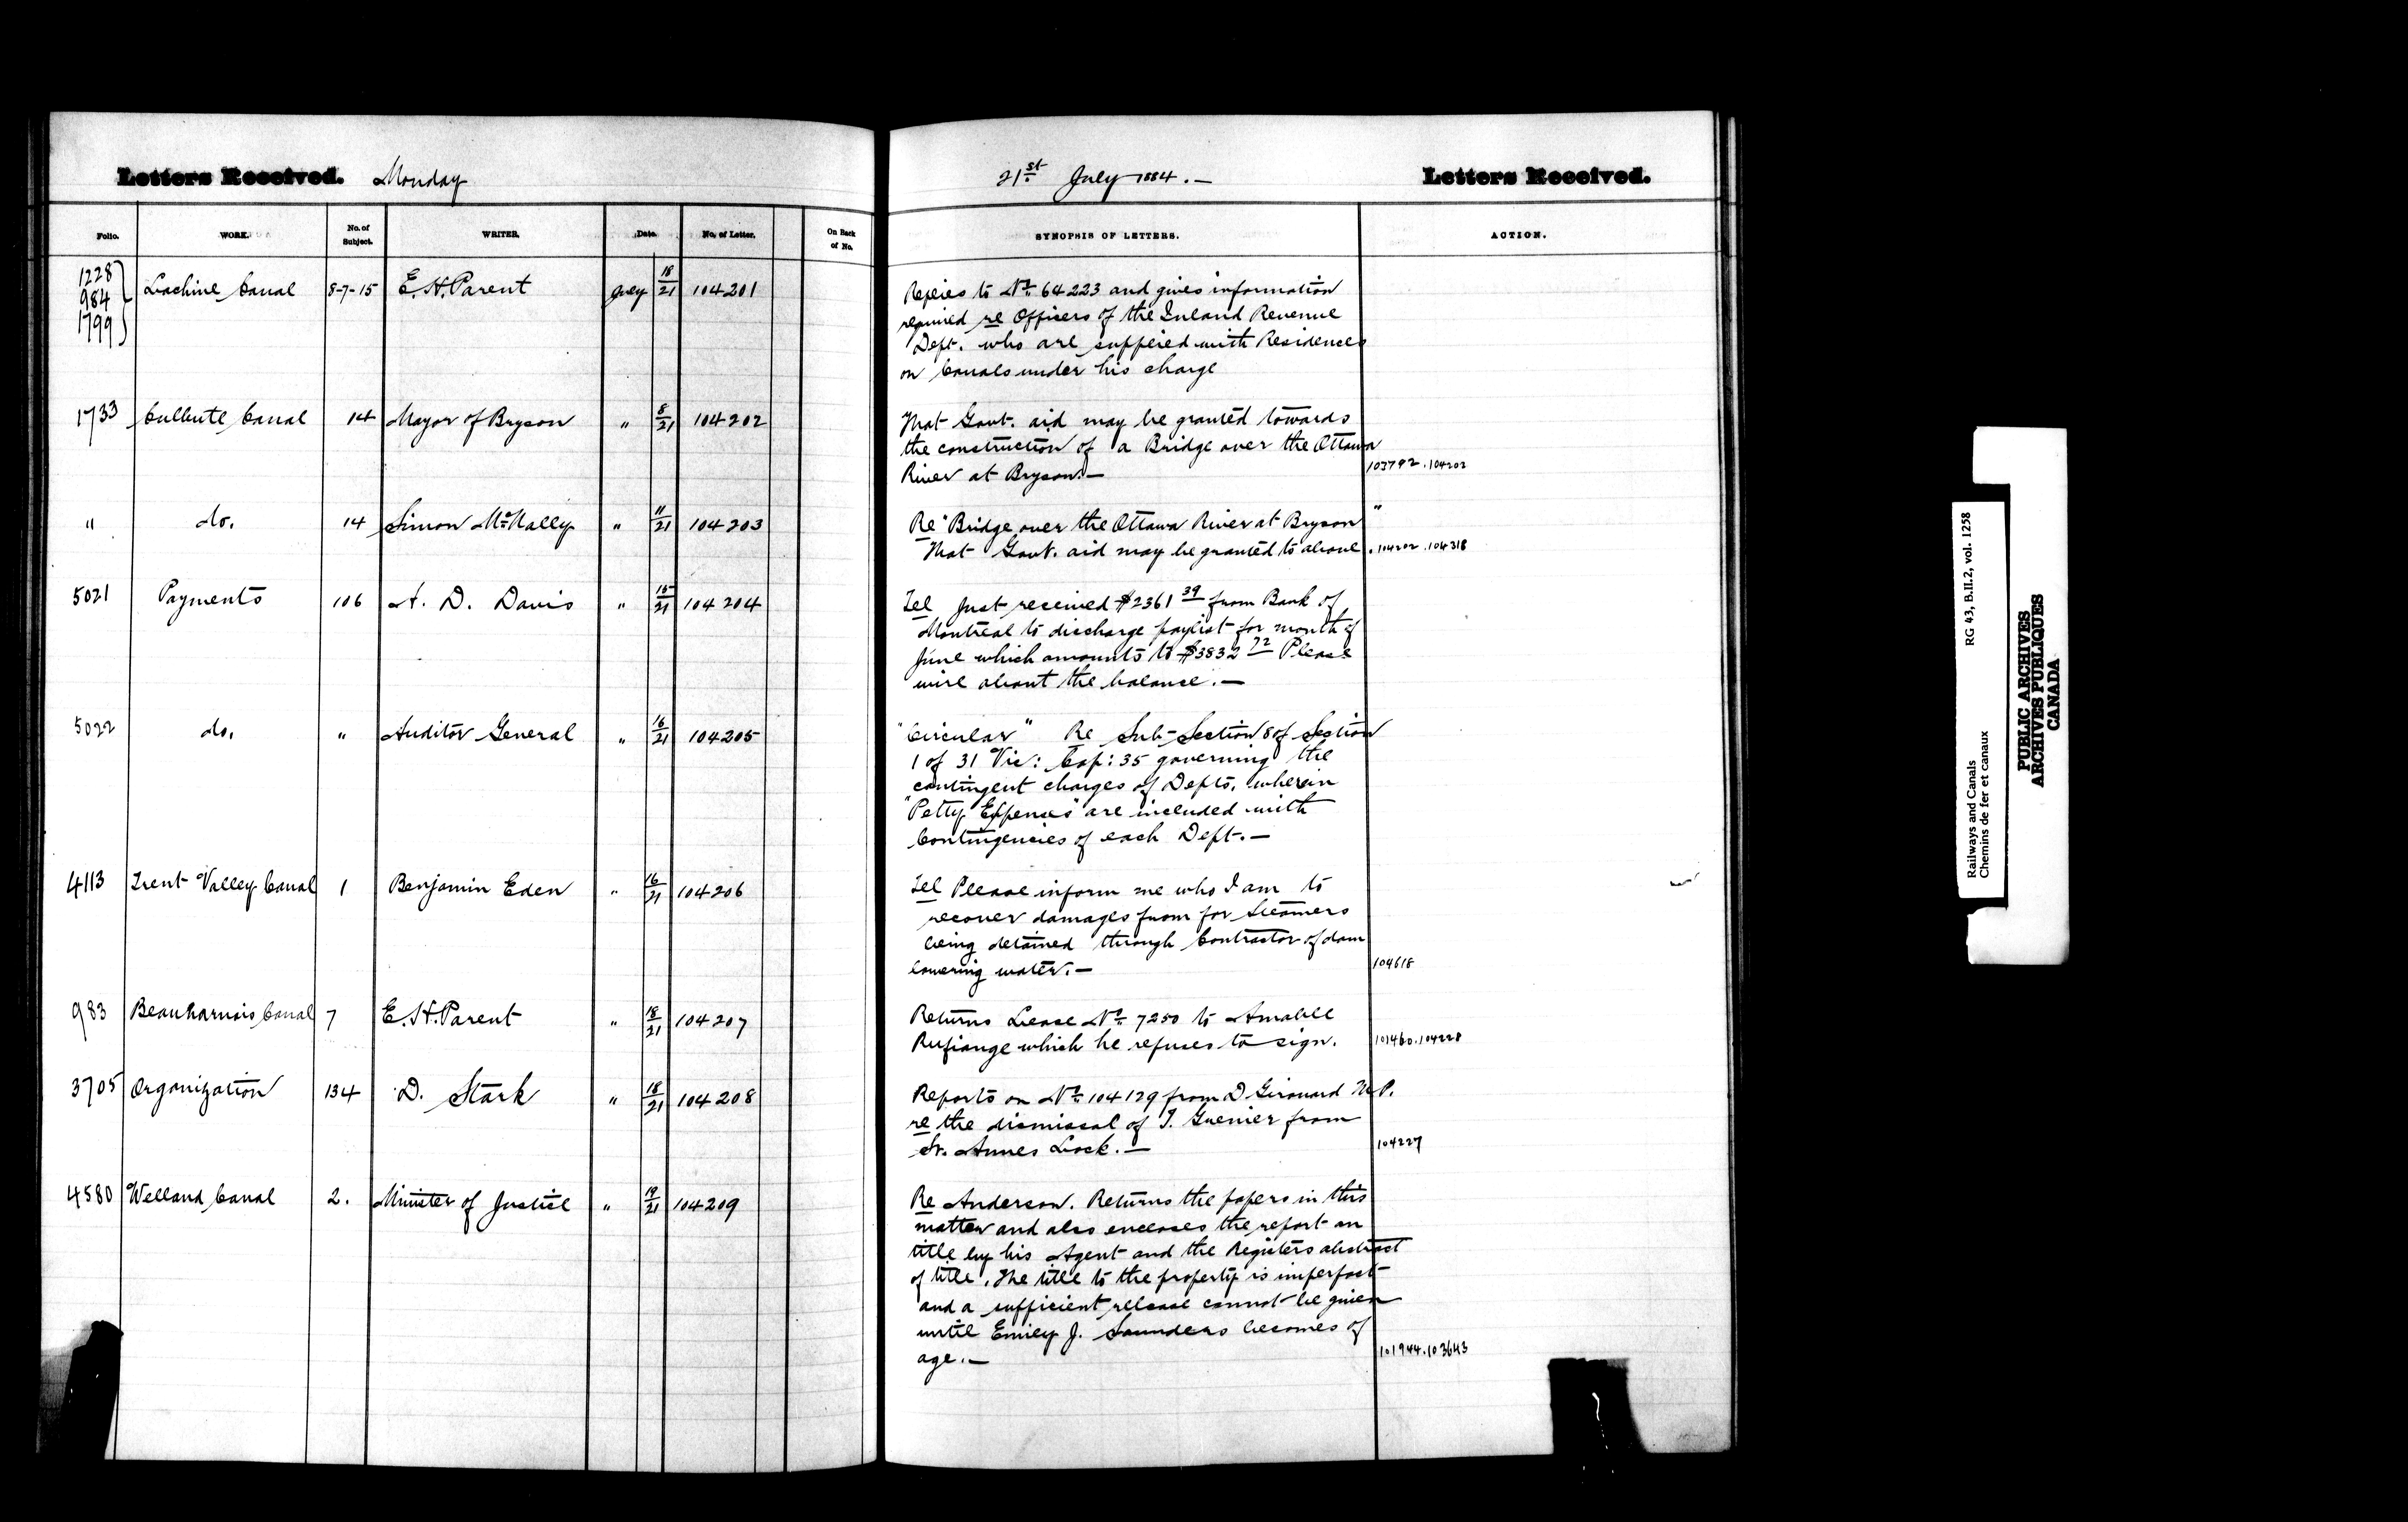 Letters Received. Monday
21st July 1884. —
Letters Received.
Folio. WORK. No. of Subject. WRITER. Date. No. of Letter. On Back of No. SYNOPSIS OF LETTERS. ACTION.
1228
984
1799
Lachine Canal 8-7-15 E. H. Parent July 18/21 104201
Replies to No. 64223 and gives information
required re Officers of the Inland Revenue
Dept. who are supplied with Residences
on Canals under his charge
1733 Culbute Canal 14 Mayor of Bryson " 8/21 104202
That Govt. aid may be granted towards
the construction of a Bridge over the Ottawa
River at Bryson. — 103792.104202
" do. 14 Simon McNally " 11/21 104203
Re "Bridge over the Ottawa River at Bryson"
That Govt. aid may be granted to above. 104202.104318
5021 Payments 106 A. D. Davis " 15/21 104204
Tel Just received $2361 39 from Bank of
Montreal to discharge paylist for month of
June which amounts to $3832 72 Please
wire about the balance. —
5022 do. " Auditor General " 16/21 104205
"Circular" Re Sub-Section 8 of Section
1 of 31 Vic: Cap: 35 governing the
contingent charges of Depts. wherein
"Petty Expenses" are included with
Contingencies of each Dept. —
4113 Trent Valley Canal 1 Benjamin Eden " 16/21 104206
Tel Please inform me who I am to
recover damages from for Steamers
being detained through Contractor of dam
lowering water. — 104618
983 Beauharnois Canal 7 E. H. Parent " 18/21 104207
Returns Lease No. 7250 to Amable
Rufiange which he refuses to sign. 101460.104228
3705 Organization 134 D. Stark " 18/21 104208
Reports on No. 104129 from D Girouard M.P.
re the dismissal of T. Guenier from
St. Annes Lock. — 104227
4580 Welland Canal 2. Minister of Justice " 19/21 104209
Re Anderson. Returns the papers in this
matter and also encloses the report on
title by his Agent and the Registers abstract
of title. The title to the property is imperfect
and a sufficient release cannot be given
until Emily J. Saunders becomes of
age. — 101944.103643
Railways and Canals RG 43, B.II.2, vol. 1258
Chemins de fer et canaux
PUBLIC ARCHIVES
ARCHIVES PUBLIQUES
CANADA